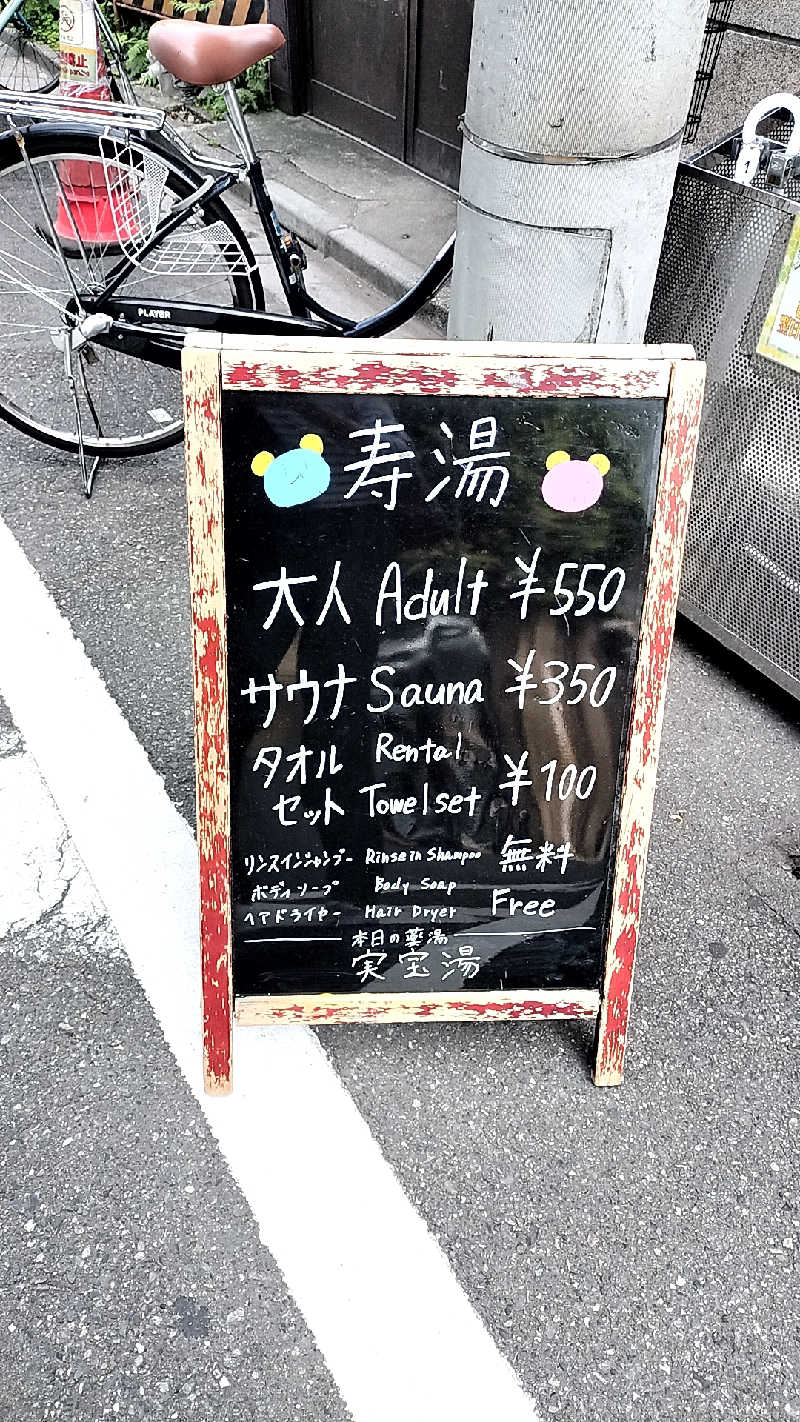 止
PLAYER
寿湯
大人 Adult ¥550
サウナ Sauna ¥350
タオル Rental
セット Towel set ¥100
リンスインシャンプー Rinse in Shampoo 無料
ボディソープ Body Soap
ヘアドライヤー Hair Dryer Free
本日の薬湯
実宝湯